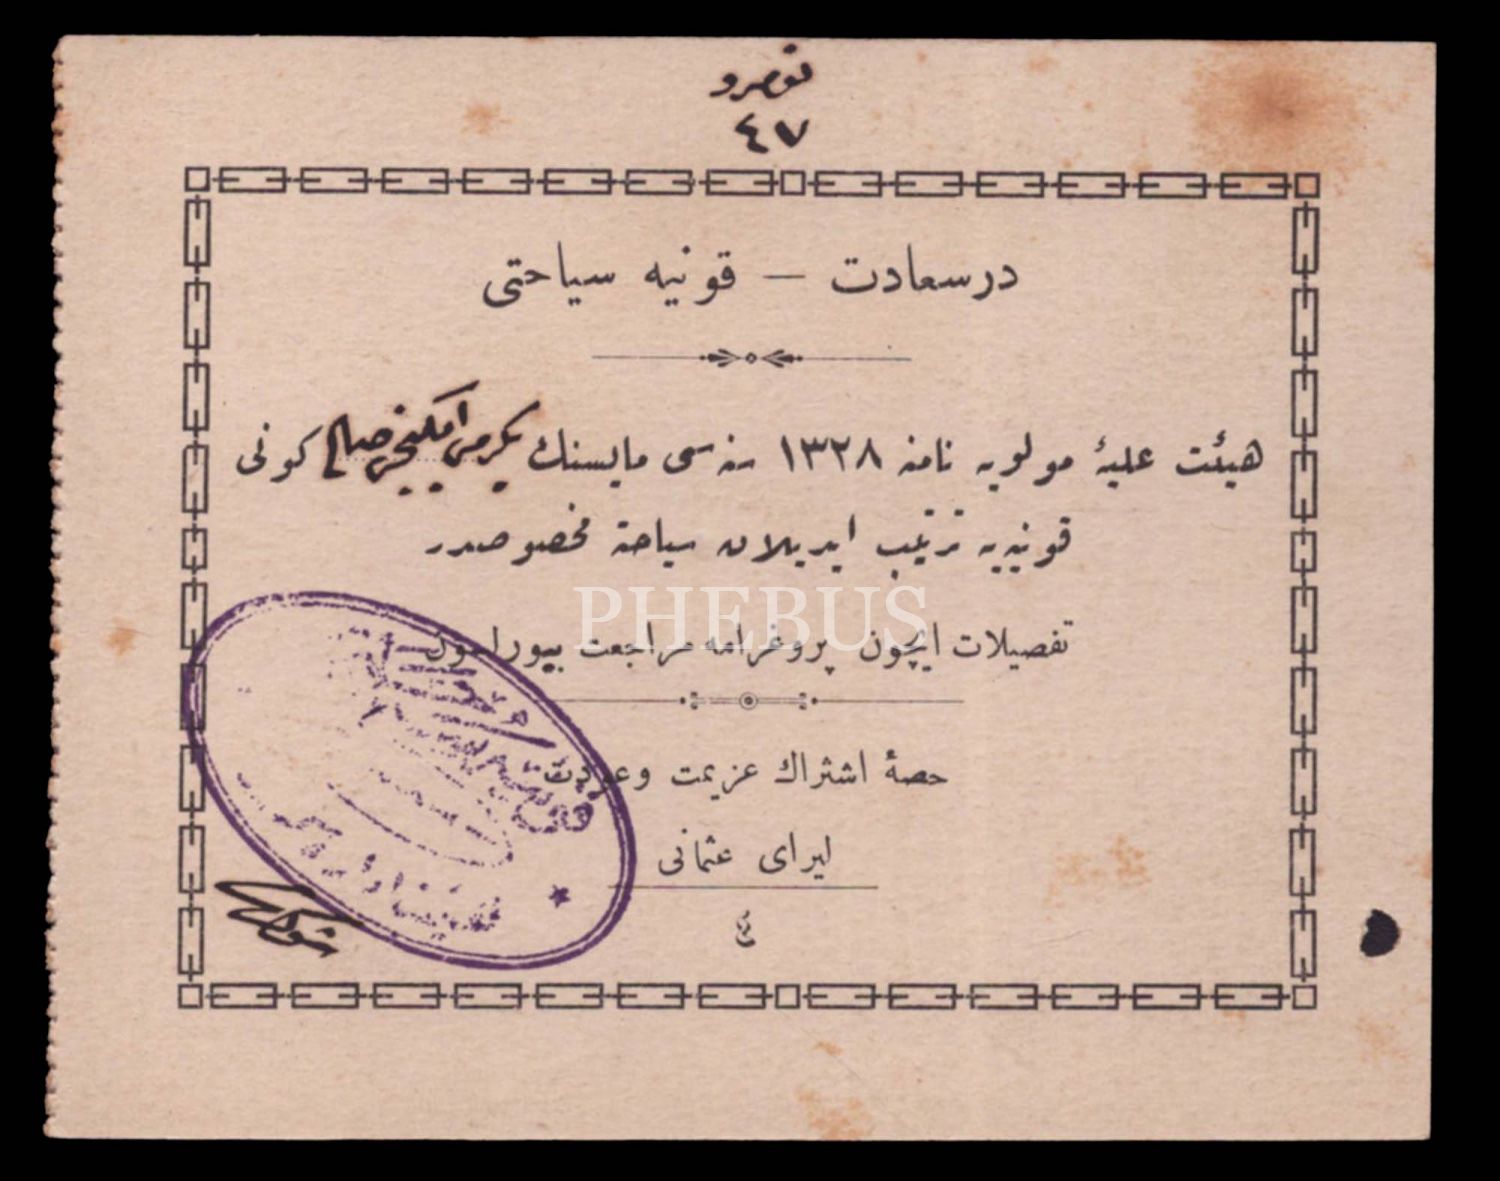 نومرو
٤٧
درسعادت — قونیه سیاحتی
هیئت علیهٔ مولویه نامنه ١٣٢٨ سنه سی مایسنك یكرمی ایكنجی صالی كونی
قونیه‌یه ترتیب ایدیلان سیاحته مخصوصدر
PHEBUS
تفصیلات ایچون پروغرامه مراجعت بیورلسون
حصهٔ اشتراك عزیمت وعودت
لیرای عثمانی
٤